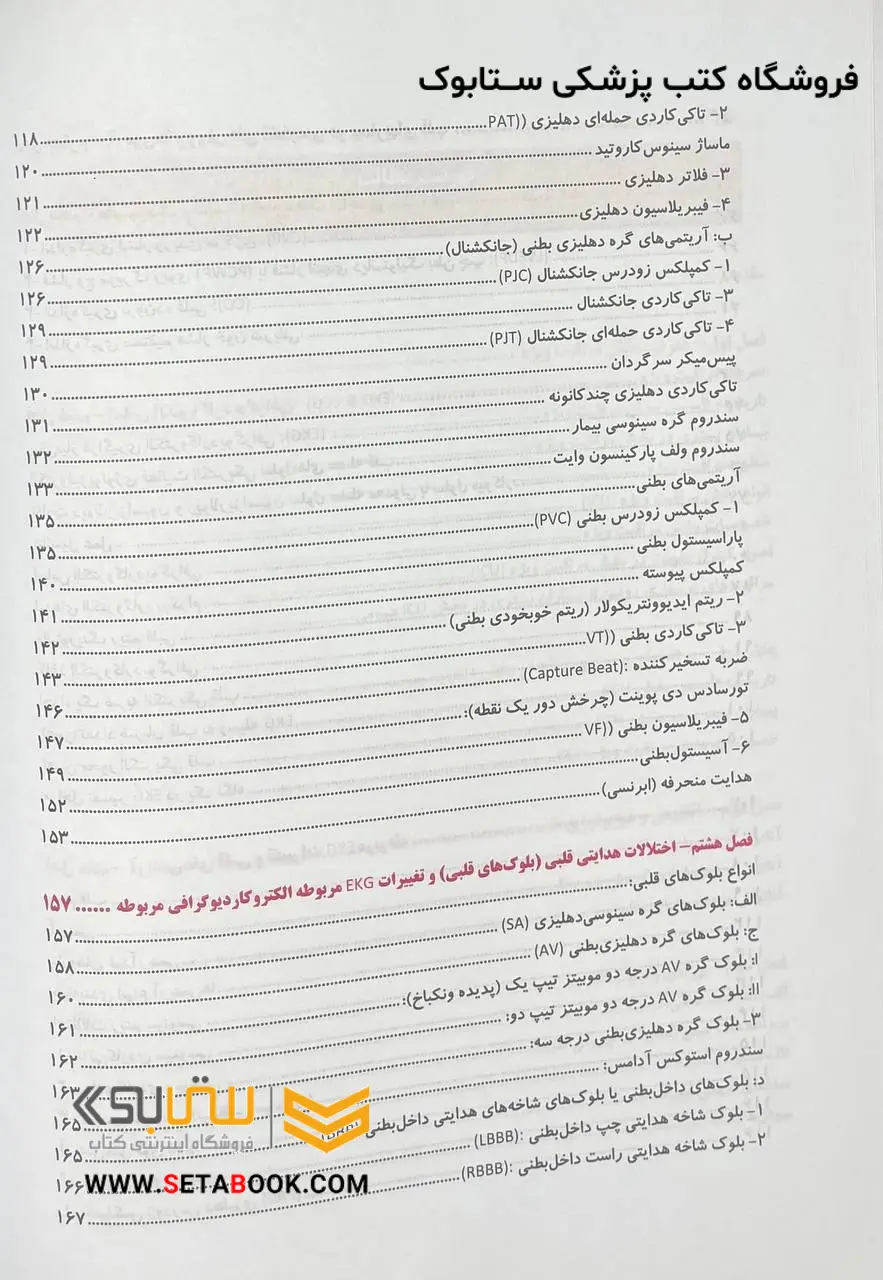 فروشگاه کتب پزشکی ستابوک
۲- تاکی‌کاردی حمله‌ای دهلیزی ((PAT ........ ۱۱۸
ماساژ سینوس‌کاروتید ........ ۱۲۰
۳- فلاتر دهلیزی ........ ۱۲۱
۴- فیبریلاسیون دهلیزی ........ ۱۲۲
ب: آریتمی‌های گره دهلیزی بطنی (جانکشنال) ........ ۱۲۶
۱- کمپلکس زودرس جانکشنال (PJC) ........ ۱۲۶
۳- تاکی‌کاردی جانکشنال ........ ۱۲۹
۴- تاکی‌کاردی حمله‌ای جانکشنال (PJT) ........ ۱۲۹
پیس‌میکر سرگردان ........ ۱۳۰
تاکی‌کاردی دهلیزی چندکانونه ........ ۱۳۱
سندروم گره سینوسی بیمار ........ ۱۳۲
سندروم ولف پارکینسون وایت ........ ۱۳۳
آریتمی‌های بطنی ........ ۱۳۵
۱- کمپلکس زودرس بطنی (PVC) ........ ۱۳۵
پاراسیستول بطنی ........ ۱۴۰
کمپلکس پیوسته ........ ۱۴۱
۲- ریتم ایدیوونتریکولار (ریتم خوبخودی بطنی) ........ ۱۴۲
۳- تاکی‌کاردی بطنی ((VT ........ ۱۴۳
ضربه تسخیرکننده :(Capture Beat) ........ ۱۴۶
تورسادس دی پوینت (چرخش دور یک نقطه): ........ ۱۴۷
۵- فیبریلاسیون بطنی ((VF ........ ۱۴۹
۶- آسیستول‌بطنی ........ ۱۵۲
هدایت منحرفه (ابرنسی) ........ ۱۵۳
فصل هشتم- اختلالات هدایتی قلبی (بلوک‌های قلبی) و تغییرات EKG مربوطه الکتروکاردیوگرافی مربوطه ...... ۱۵۷
انواع بلوک‌های قلبی: ........ ۱۵۷
الف: بلوک‌های گره سینوسی‌دهلیزی (SA) ........ ۱۵۸
ج: بلوک‌های گره دهلیزی‌بطنی (AV) ........ ۱۶۰
I: بلوک گره AV درجه دو موبیتز تیپ یک (پدیده ونکباخ): ........ ۱۶۱
II: بلوک گره AV درجه دو موبیتز تیپ دو: ........ ۱۶۲
۳- بلوک گره دهلیزی‌بطنی درجه سه: ........ ۱۶۳
سندروم استوکس آدامس: ........ ۱۶۵
د: بلوک‌های داخل‌بطنی یا بلوک‌های شاخه‌های هدایتی داخل‌بطنی ........ ۱۶۵
۱- بلوک شاخه هدایتی چپ داخل‌بطنی :(LBBB) ........ ۱۶۶
۲- بلوک شاخه هدایتی راست داخل‌بطنی :(RBBB) ........ ۱۶۷
ستابوک
فروشگاه اینترنتی کتاب
WWW.SETABOOK.COM